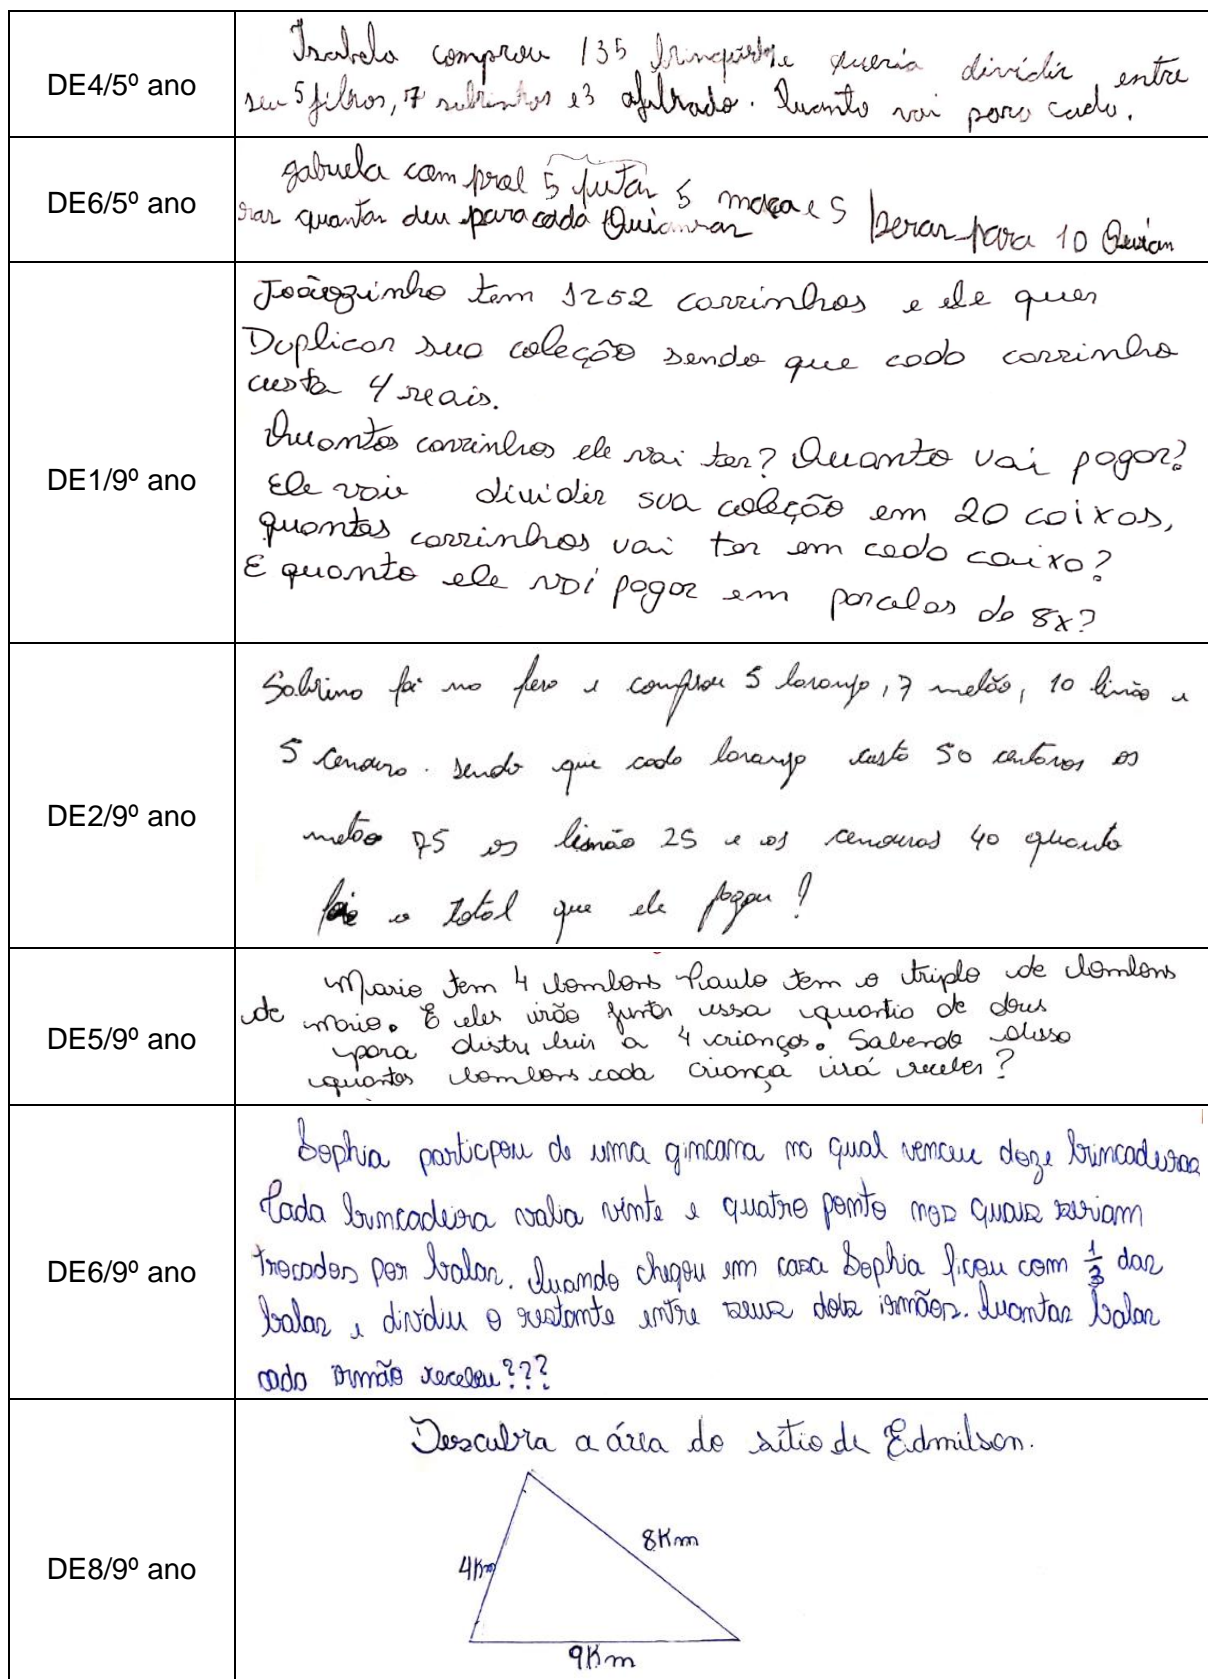 DE4/5º ano
Isabela comprou 135 brinquedo e queria dividir entre
seu 5 filhos, 7 sobrinhos e 3 afilhado. Quanto vai para cada.
DE6/5º ano
gabriela com 5 5 maca e 5 peras para 10
quantas deu para cada
DE1/9º ano
Joãozinho tem 1252 carrinhos e ele quer
Duplicar sua coleção sendo que cada carrinho
custa 4 reais.
Quantos carrinhos ele vai ter? Quanto vai pagar?
Ele vai dividir sua coleção em 20 caixas,
quantos carrinhos vai ter em cada caixa?
E quanto ele vai pagar em parcelas de 8x?
DE2/9º ano
Sabrina foi no e comprou 5 laranja, 7 melão, 10 limão e
5 cenoura. sendo que cada laranja custa 50 centavos os
melão 75 os limão 25 e os cenouras 40 quanto
foi o total que ele pagou?
DE5/9º ano
Mario tem 4 bombons Paulo tem o triplo de bombons
de Mario. E eles irão juntar essa quantia de
para distribuir a 4 crianças. Sabendo disso
quantos bombons cada criança irá receber?
DE6/9º ano
Sophia participou de uma gincana na qual venceu doze brincadeiras
Cada brincadeira valia vinte e quatro ponto nos quais seriam
trocados por balas. Quando chegou em casa Sophia ficou com 1/3 das
balas e dividiu o restante entre seus dois irmãos. Quantas balas
cada irmão recebeu???
DE8/9º ano
Descubra a área do sítio de Edmilson.
8Km
4Km
9Km